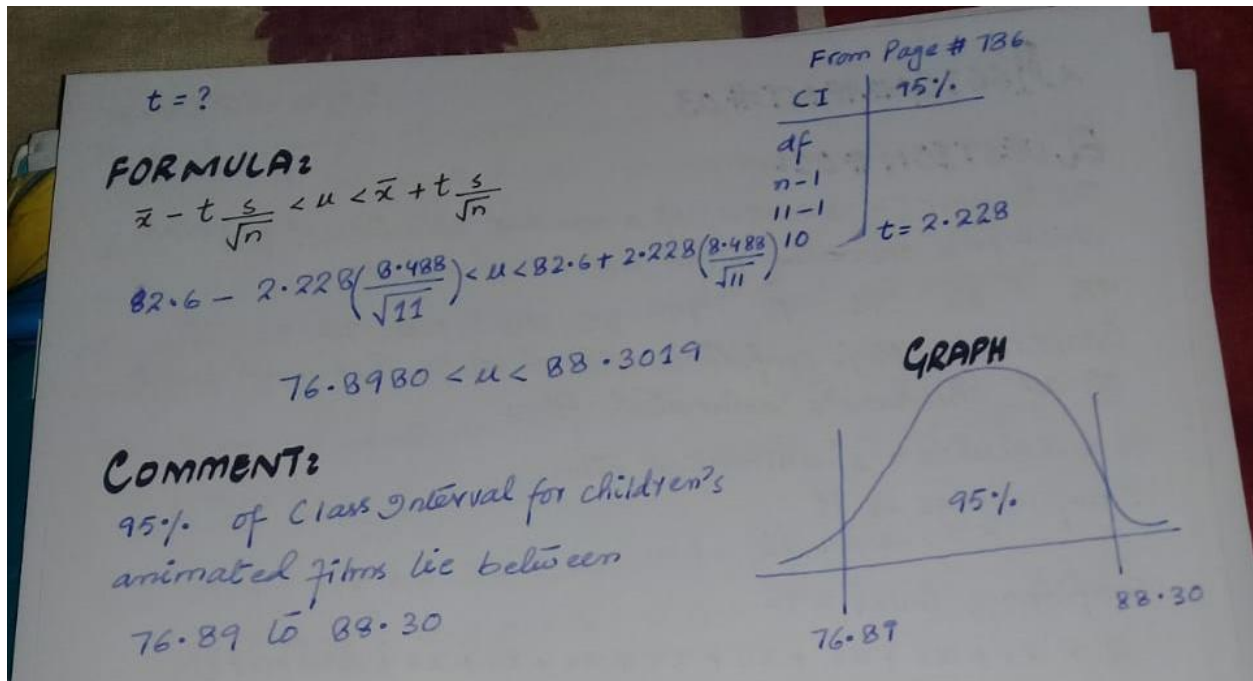 t = ?
From Page # 736
CI 95%
df
n-1
11-1
10
t = 2.228
FORMULA:
x̄ - t s/√n < u < x̄ + t s/√n
82.6 - 2.228(8.488/√11) < u < 82.6 + 2.228(8.488/√11)
76.8980 < u < 88.3019
COMMENT:
95% of Class Interval for children's
animated films lie between
76.89 to 88.30
GRAPH
95%
76.89
88.30